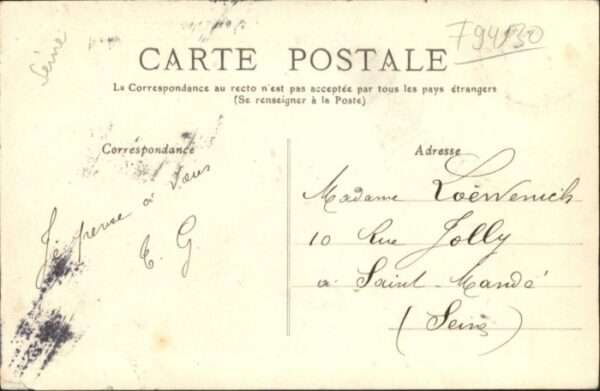 Seine
794530
CARTE POSTALE
La Correspondance au recto n'est pas acceptée par tous les pays étrangers
(Se renseigner à la Poste)
Correspondance
Je pense à vous
T. G
Adresse
Madame Loëwenich
10 Rue Jolly
a Saint-Mandé
(Seine)